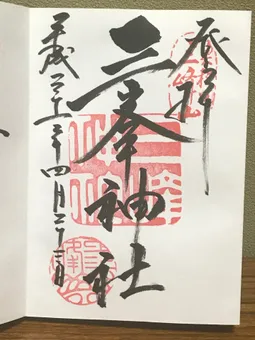 登拝
三峯神社
平成三十一年四月二十三日